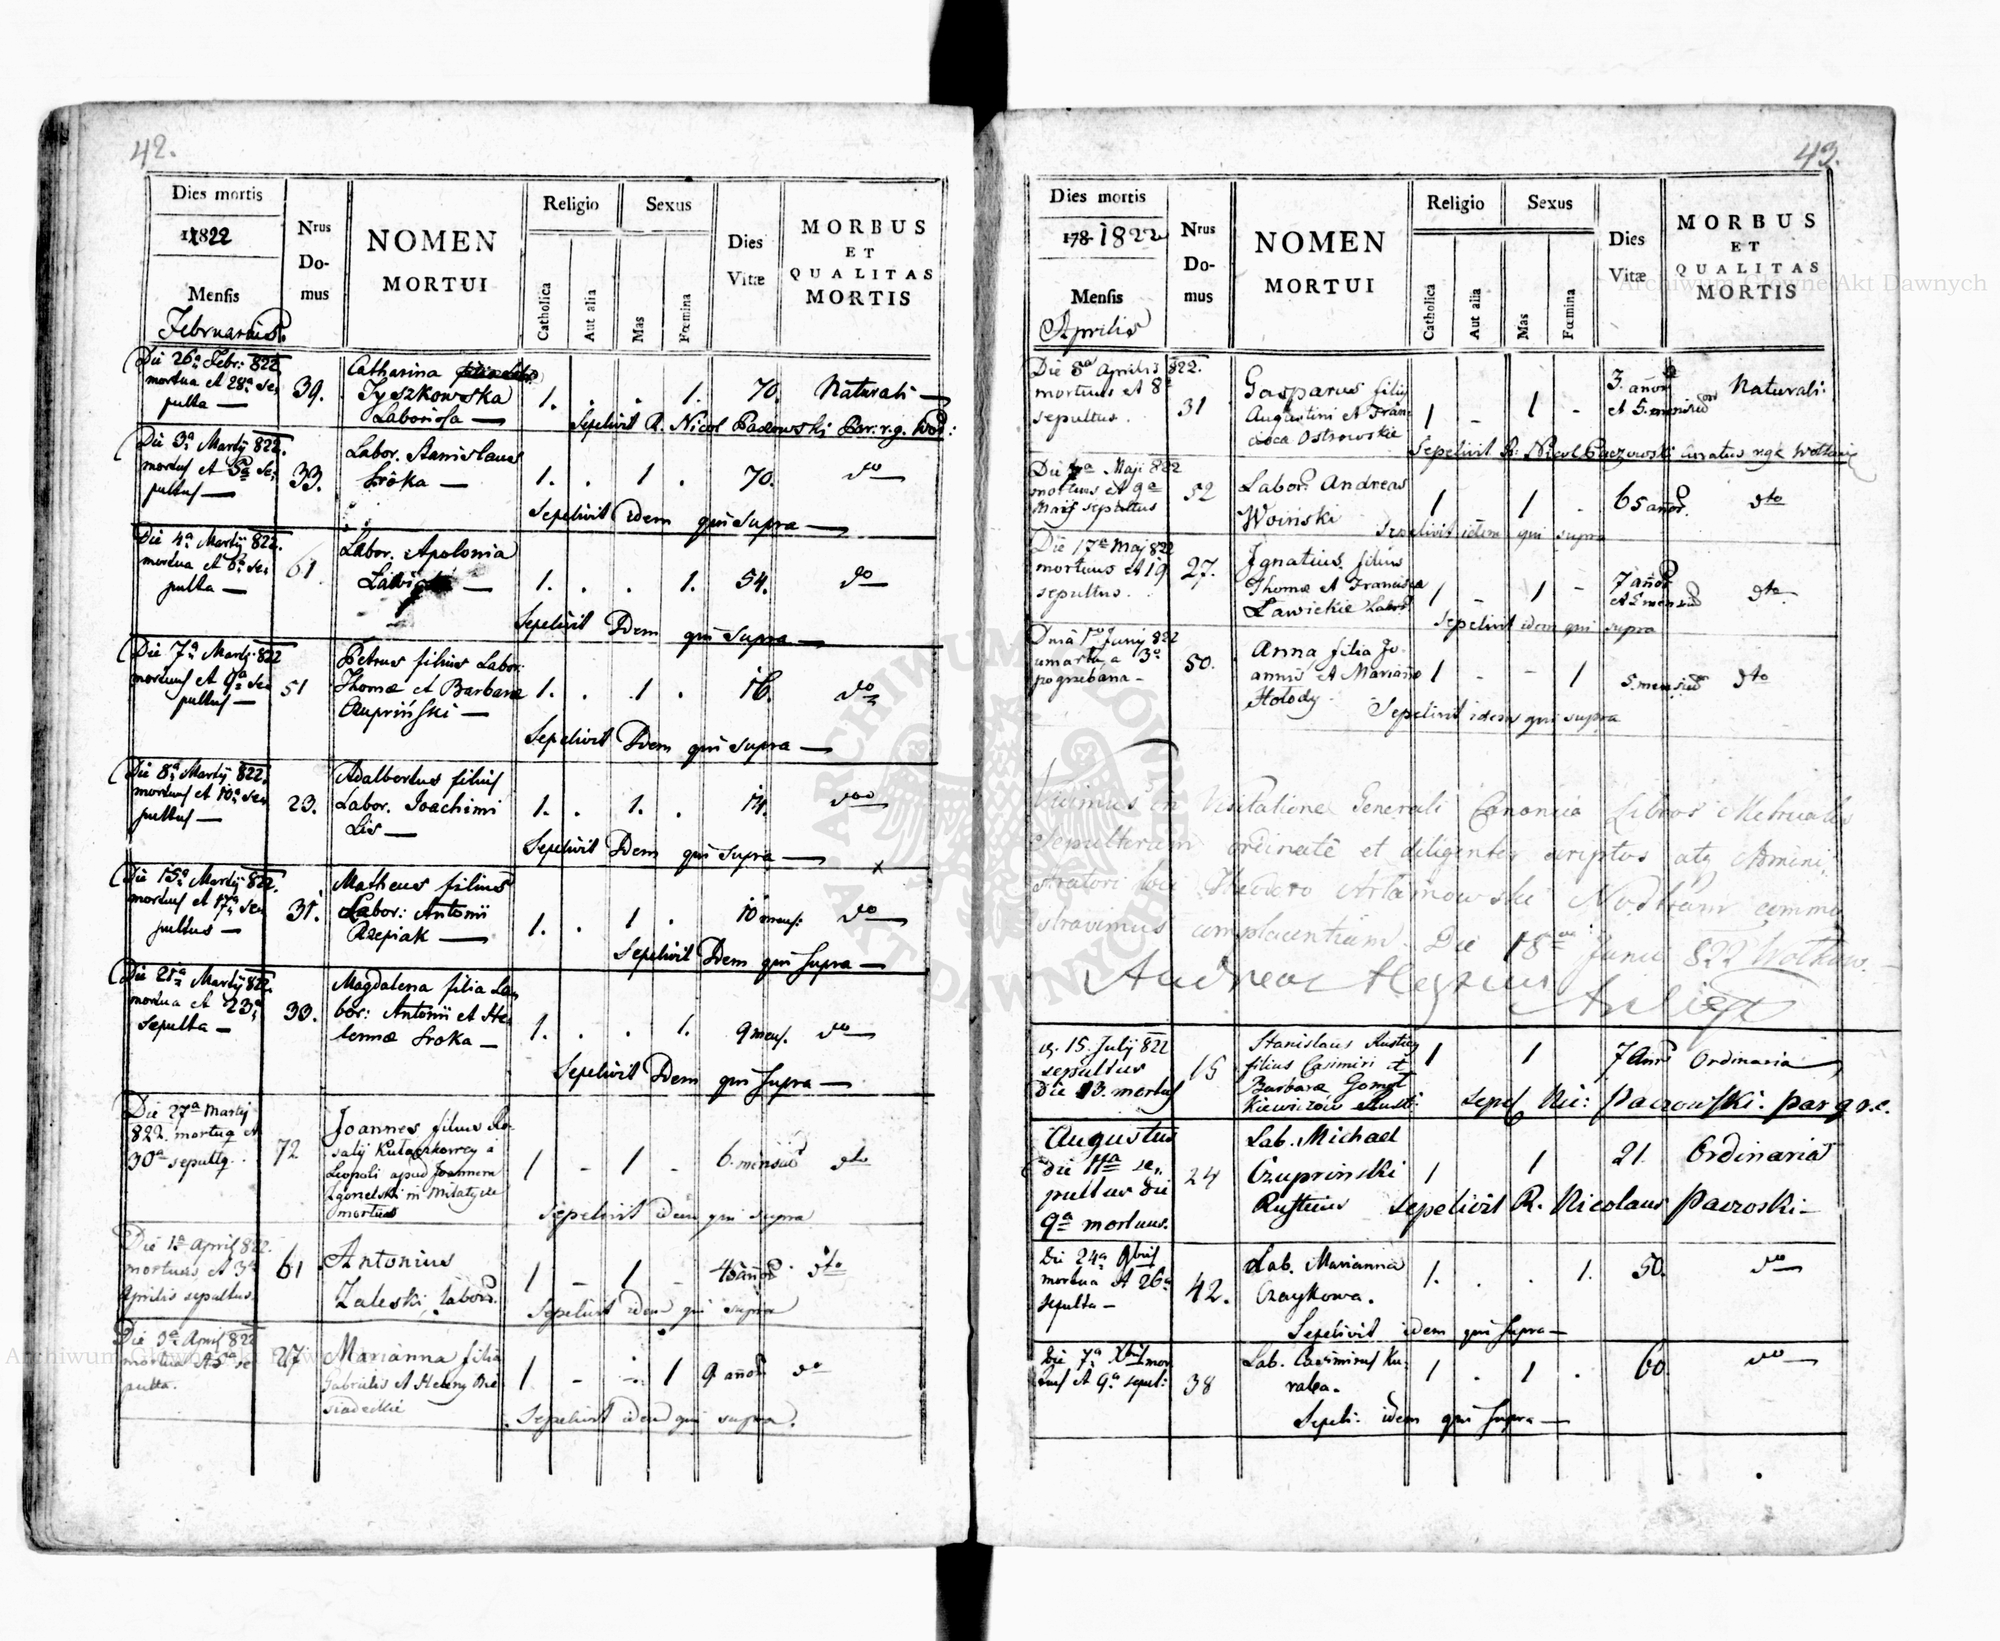 42.
Dies mortis
1822
Mensis
Februarius.
Nrus Do-
mus
NOMEN
MORTUI
Religio
Catholica
Aut alia
Sexus
Mas
Fœmina
Dies
Vitæ
MORBUS
ET
QUALITAS
MORTIS
Die 26a Febr: 822
mortua et 28a Se-
pulta —
39.
Catharina
Tyszkowska
Laboriosa —
1. . . 1. 70. Naturali —
Sepelivit R. Nicol Paczowski Par: r. g. Wod:
Die 3a Martÿ 822.
mortuus et 5a Se-
pultus —
33.
Labor. Stanislaus
Sroka —
1. . 1 . 70. do —
Sepelivit idem qui supra —
Die 4a Martÿ 822.
mortua et 6a Se-
pulta —
61.
Labor. Apolonia
1. . . 1. 54. do —
Sepelivit Idem qui Supra —
Die 7a Martÿ 822
mortuus et 9a Se-
pultus —
51
Petrus filius Labor.
Thomæ et Barbaræ
Czupriński —
1. . 1 . 16. do —
Sepelivit Idem qui supra —
Die 8a Martÿ 822.
mortuus et 10a Se-
pultus —
23.
Adalbertus filius
Labor. Joachimi
Lis —
1. . 1. . 14. do —
Sepelivit Idem qui supra —
x
Die 15a Martÿ 822.
mortuus et 17a Se-
pultus —
31.
Matheus filius
Labor: Antonii
Rzepiak —
1. . 1 . 10 mens. do —
Sepelivit Idem qui supra —
Die 21a Martÿ 822.
mortua et 23a
Sepulta —
33.
Magdalena filia La-
bor: Antonii et He-
lennæ Sroka —
1. . . 1. 9 mens. do —
Sepelivit Idem qui supra —
Die 27a Martÿ
822. mortuq et
30a sepultq.
72
Joannes filius Ro-
salÿ
Leopoli apud Joannem
Zgorzelski in Milatycze
mortuus
1 - 1 - 6. mensiū dto
Sepelivit idem qui supra
Die 1a April 822.
mortuus et 3a
Aprilis sepultus.
61
Antonius
Zaleski, labor.
1 - 1 - 48 añorū. dto
Sepelivit idem qui supra
Die 3a April 822
mortua et 5a se
pulta.
27
Marianna filia
Gabrielis et Heleny
1 - - 1 9 añorū do
Sepelivit idem qui supra.
43.
Dies mortis
178 1822
Mensis
Aprilis
Nrus
Do-
mus
NOMEN
MORTUI
Religio
Catholica
Aut alia
Sexus
Mas
Fœmina
Dies
Vitæ
MORBUS
ET
QUALITAS
MORTIS
Die 8a Aprilis 822.
mortuus et 8a
sepultus.
31
Gasparus filÿ
Augustini et Fran-
cisca Ostrowskie
1 - 1 - 3. añorū et 5. mensiū Naturali.
Sepelivit R: Nicol Paczowski Curatus
Die 7a Maji 822
mortuus et 9a
Maÿ sepultus
52
Labor: Andreas
Woiński
1 1 65 añorū. dto
Sepelivit idem qui supra
Die 17a Maj 822
mortuus et 19
sepultus.
27.
Ignatius filius
Thomæ et Francisca
Ławickie Labor
1 - 1 - 7 añorū dto
Sepelivit idem qui supra
Dnia 1o Junÿ 822
umarła, a 3o
pogrzebana -
50.
Anna filia Jo-
annis et Mariañe
Hołody.
1 - - 1 5. mensiū dto
Sepelivit idem qui supra
Vidimus in Visitatione Generali Canonica Libros Metricales
Sepultorum ordinatè et diligenter scriptos atq Admini-
stratori loci Theodoro Artamowski Nostram commo
stravimus complacentiam. Die 18va Junii 822
Andreas
15. July 822
sepultus
Die 13. mortus
15
Stanislaus
filius Casimiri et
Barbaræ
1 1 7 Ann Ordinaria
Sepel Nic: Paczowski. par g r. c.
Augustus
die 11a se-
pultus die
9a mortuus.
24
Lab. Michael
Czuprinski
1 1 21. Ordinaria
Sepelivit R. Nicolaus Paczoski -
Die 24a 9bris
mortua et 26a
sepulta —
42.
Lab. Marianna
Czaykowa.
1. . . 1. 50. do —
Sepelivit idem qui supra —
Die 7a Xbris mor
tuus et 9a sepul:
38
Lab. Casimirus Ku-
ralea.
1 . 1 . 60. do —
Sepeli: idem qui supra —
ARCHIWUM GŁÓWNE AKT DAWNYCH
Archiwum Główne Akt Dawnych